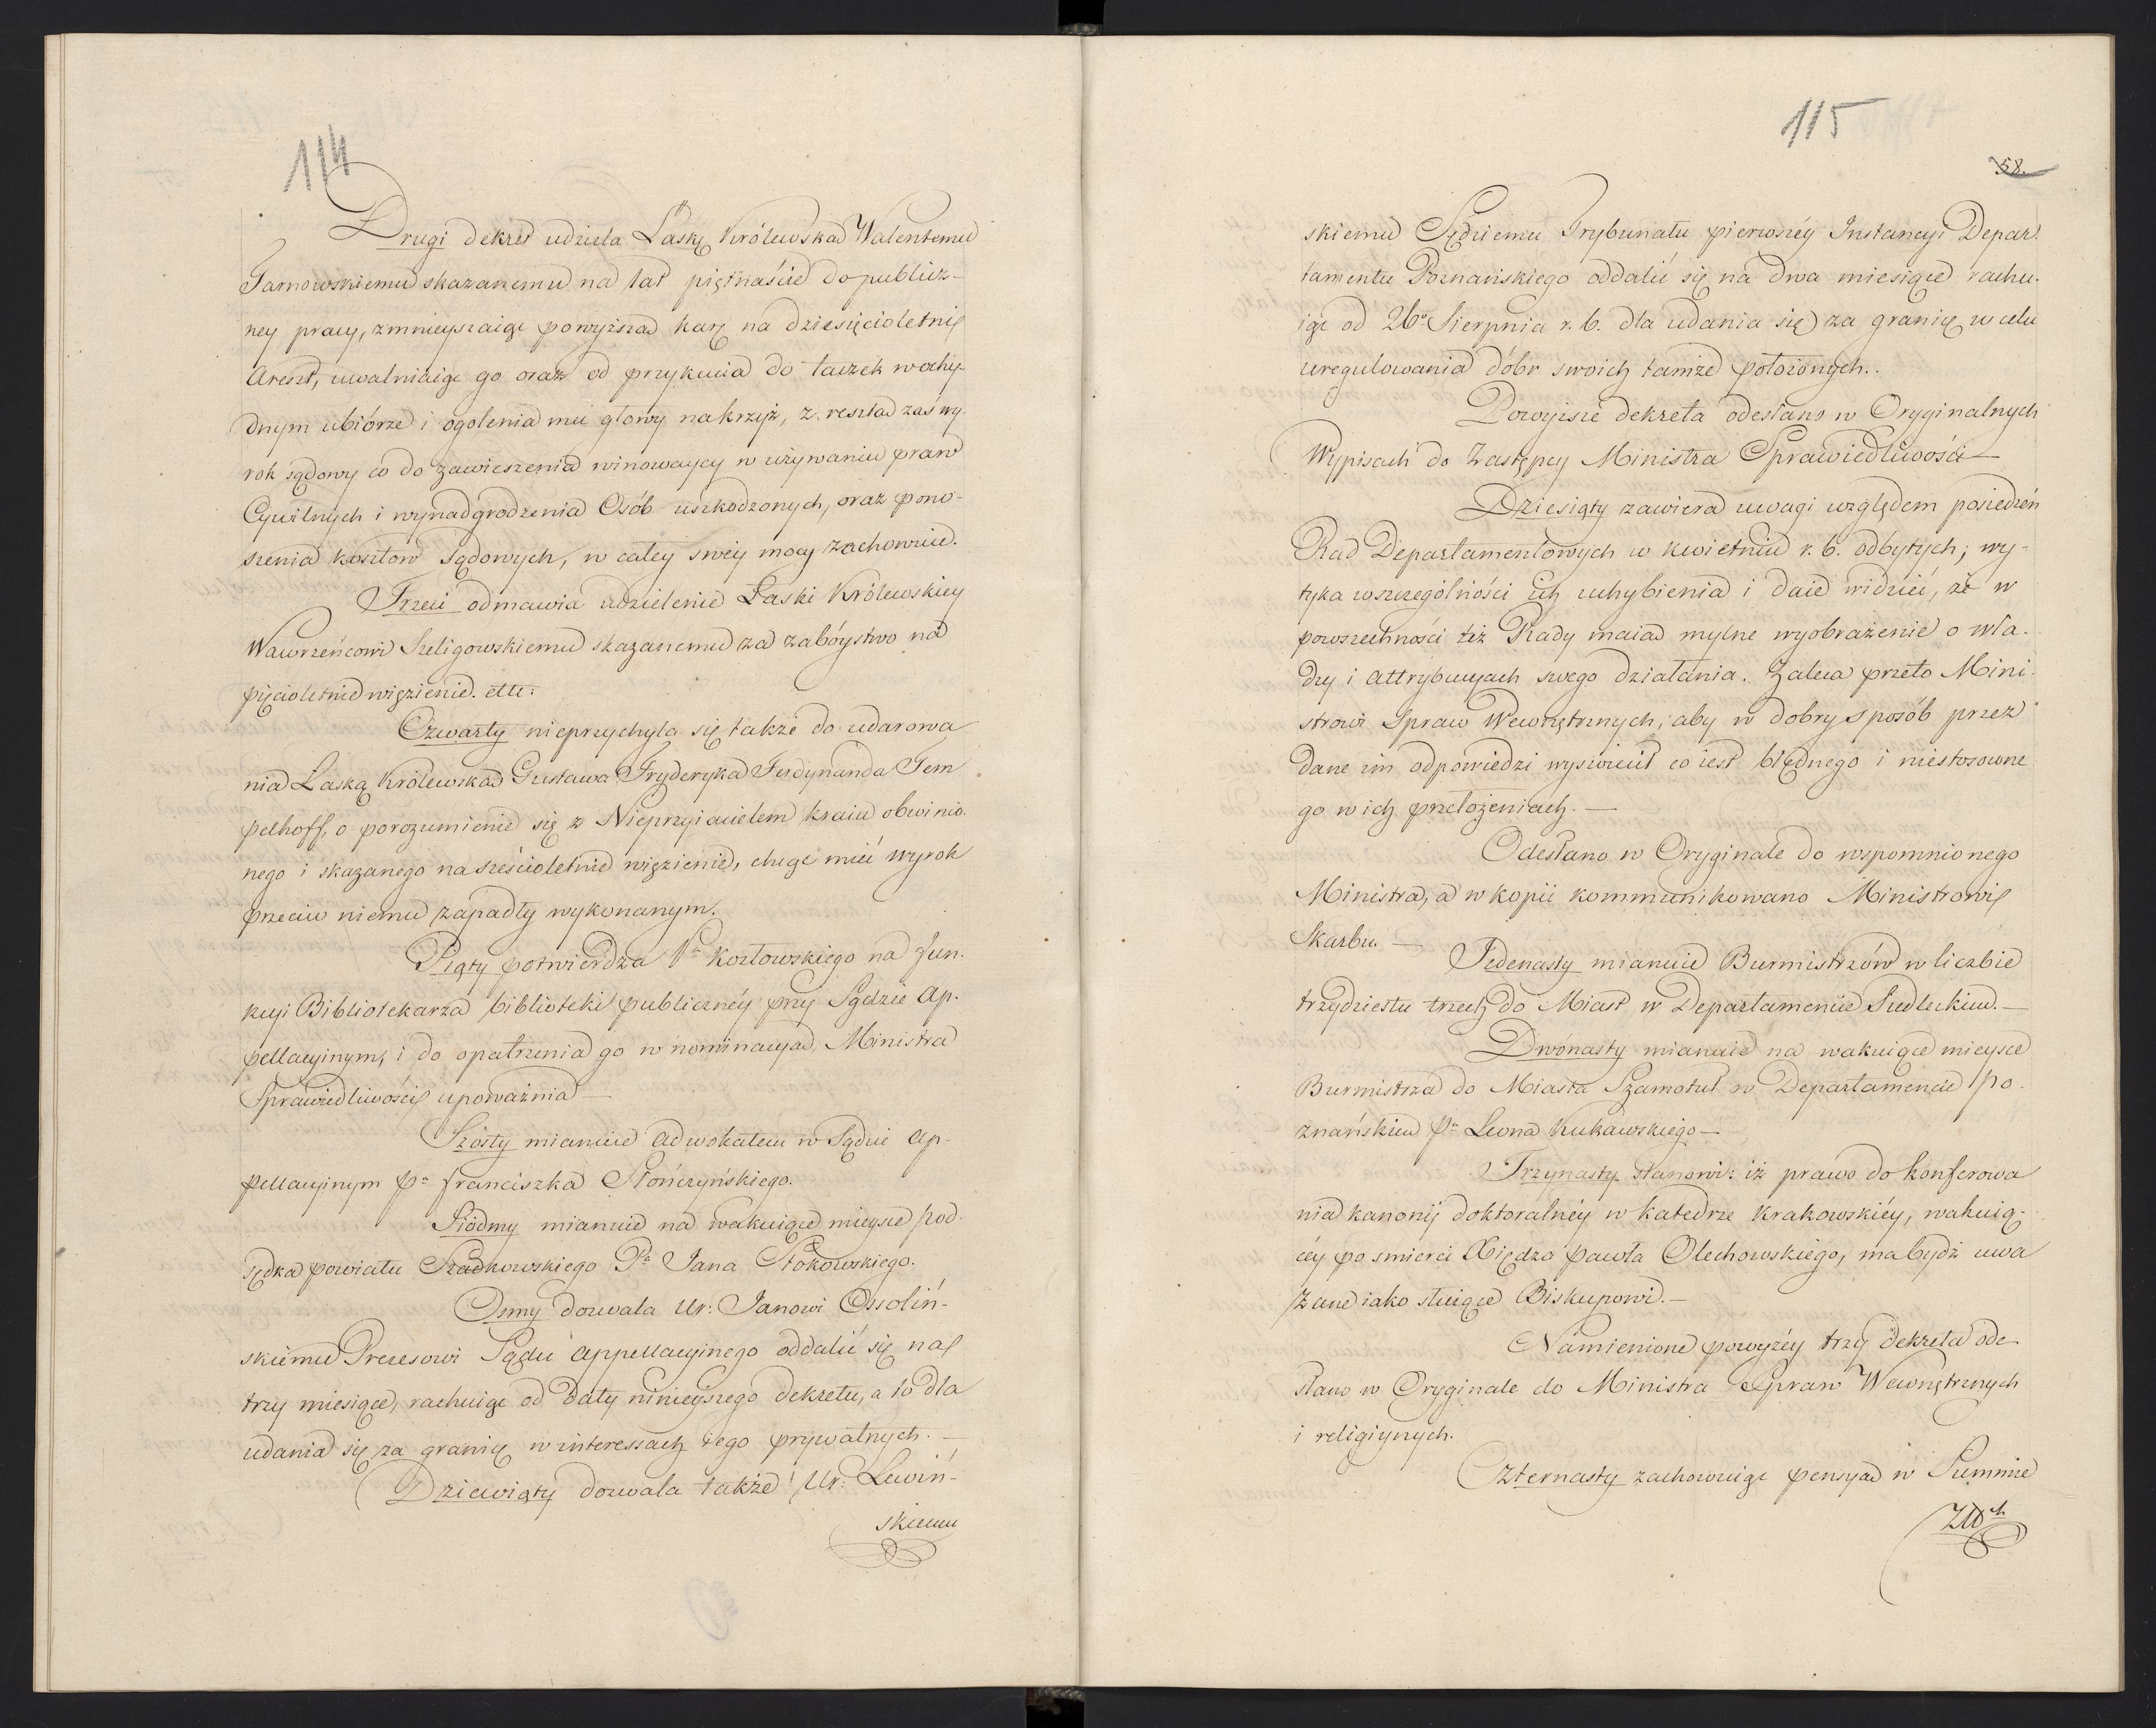 114
Drugi dekret udziela Łaskę Królewską Walentemu
Tarnowskiemu skazanemu na lat piętnaście do publicz-
ney pracy, zmnieyszaiąc powyższą karę na dziesięcioletni
Areszt, uwalniaiąc go oraz od przykucia do taczek w ochy-
dnym ubiórze i ogolenia mu głowy na krzyż, z resztą zaś wy-
rok sądowy co do zawieszenia winowaycy w używaniu praw
Cywilnych i wynadgrodzenia Osób uszkodzonych, oraz pono-
szenia kosztów sądowych, w całey swéy mocy zachowuie.
Trzeci odmawia udzielenie Łaski Królewskiey
Wawrzeńcowi Szeligowskiemu skazanemu za zabóystwo na
pięcioletnie więzienie. etc:
Czwarty nieprzychyla się także do udarowa
nia Łaską Królewską Gustawa Fryderyka Ferdynanda Tem
pelhoff, o porozumienie się z Nieprzyiacielem kraiu obwinio-
nego i skazanego na sześcioletnie więzienie, chcąc mieć wyrok
przeciw niemu zapadły wykonanym.
Piąty potwierdza Pa Kozłowskiego na fun-
kcyi Bibliotekarza biblioteki publicznéy przy Sądzie Ap-
pellacyinym, i do opatrzenia go w nominacyą, Ministra
Sprawiedliwości upoważnia —
Szósty mianuie adwokatem w Sądzie Ap-
pellacyinym Pa franciszka Słończyńskiego.
Siódmy mianuie na wakuiące mieysce pod-
sędka powiatu Szadkowskiego Pa Jana Stokowskiego.
Osmy dozwala Ur: Janowi Ossoliń-
skiemu Prezesowi Sądu Appellacyinego oddalić się na
trzy miesiące, rachuiąc od daty ninieyszego dekretu, a to dla
udania się za granicę w interessach iego prywatnych. —
Dziewiąty dozwala także Ur: Lewiń-
skiemu
115
58.
skiemu Sędziemu Trybunału pierwszéy Instancyi Depar-
tamentu Poznańskiego oddalić się na dwa miesiące rachu-
iąc od 26o Sierpnia r. b. dla udania się za granicę w celu
uregulowania dóbr swoich tamże położonych..
Powyższe dekreta odesłano w Oryginalnych
Wypisach do Zastępcy Ministra Sprawiedliwości —
Dziesiąty zawiera uwagi względem posiedzeń
Rad Departamentowych w kwietniu r. b. odbytych; wy-
tyka w szczególności ich uchybienia i daie widzieć, że w
powszechności też Rady maią mylne wyobrażenie o wła-
dzy i attrybucyach swego działania. Zaleca przeto Mini-
strowi Spraw Wewnętrznych, aby w dobry sposób przez
dane im odpowiedzi wyswiecił co iest błędnego i niestosowne
go w ich przełożeniach. —
Odesłano w Oryginale do wspomnionego
Ministra, a w kopii kommunikowano Ministrowi
Skarbu. —
Jedenasty mianuie Burmistrzów w liczbie
trzydziestu trzech do Miast w Departamencie Siedleckim. —
Dwónasty mianuie na wakuiące mieysce
Burmistrza do Miasta Szamotuł w Departamencie Po-
znańskim Pa Leona Kukawskiego —
Trzynasty stanowi: iż prawo do konferowa
nia kanonij doktoralnéy w katedrze Krakowskiéy, wakuią-
céy po smierci Xiędza Pawła Olechowskiego, ma bydź uwa
żane iako służące Biskupowi. —
Namienione powyżéy trzy dekreta ode-
słano w Oryginale do Ministra Spraw Wewnętrznych
i religiynych.
Czternasty zachowuiąc pensyą w Summie